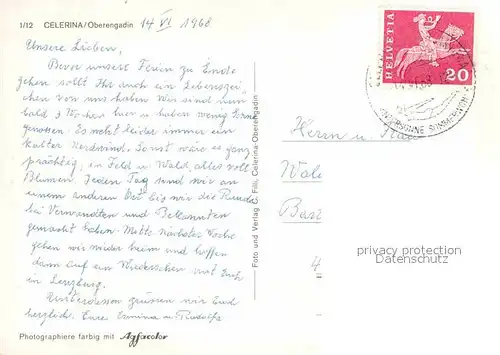 1/12 CELERINA/Oberengadin 14 VI 1968
Unsere Lieben,
Bevor unsere Ferien zu Ende
gehen sollt Ihr auch ein Lebenszei-
chen von uns haben. Wir sind nun
bald 3 Wochen hier u. haben wenig Sonne
genossen. Es weht leider immer ein
kalter Nordwind. Sonst wäre es ganz
prächtig, in Feld u. Wald, alles voll
Blumen. Jeden Tag sind wir an
einem anderen Ort bis wir die Runde
bei Verwandten und Bekannten
gemacht haben. Mitte nächster Woche
gehen wir wieder heim und hoffen
dann auf ein Wiedersehen mit Euch
in Lenzburg.
Unterdessen grüssen wir Euch
herzlich. Eure u. Rudolf
Photographiere farbig mit Agfacolor
Foto und Verlag T. Filli, Celerina-Oberengadin
HELVETIA
20
Herrn u.
privacy protection
Datenschutz
4